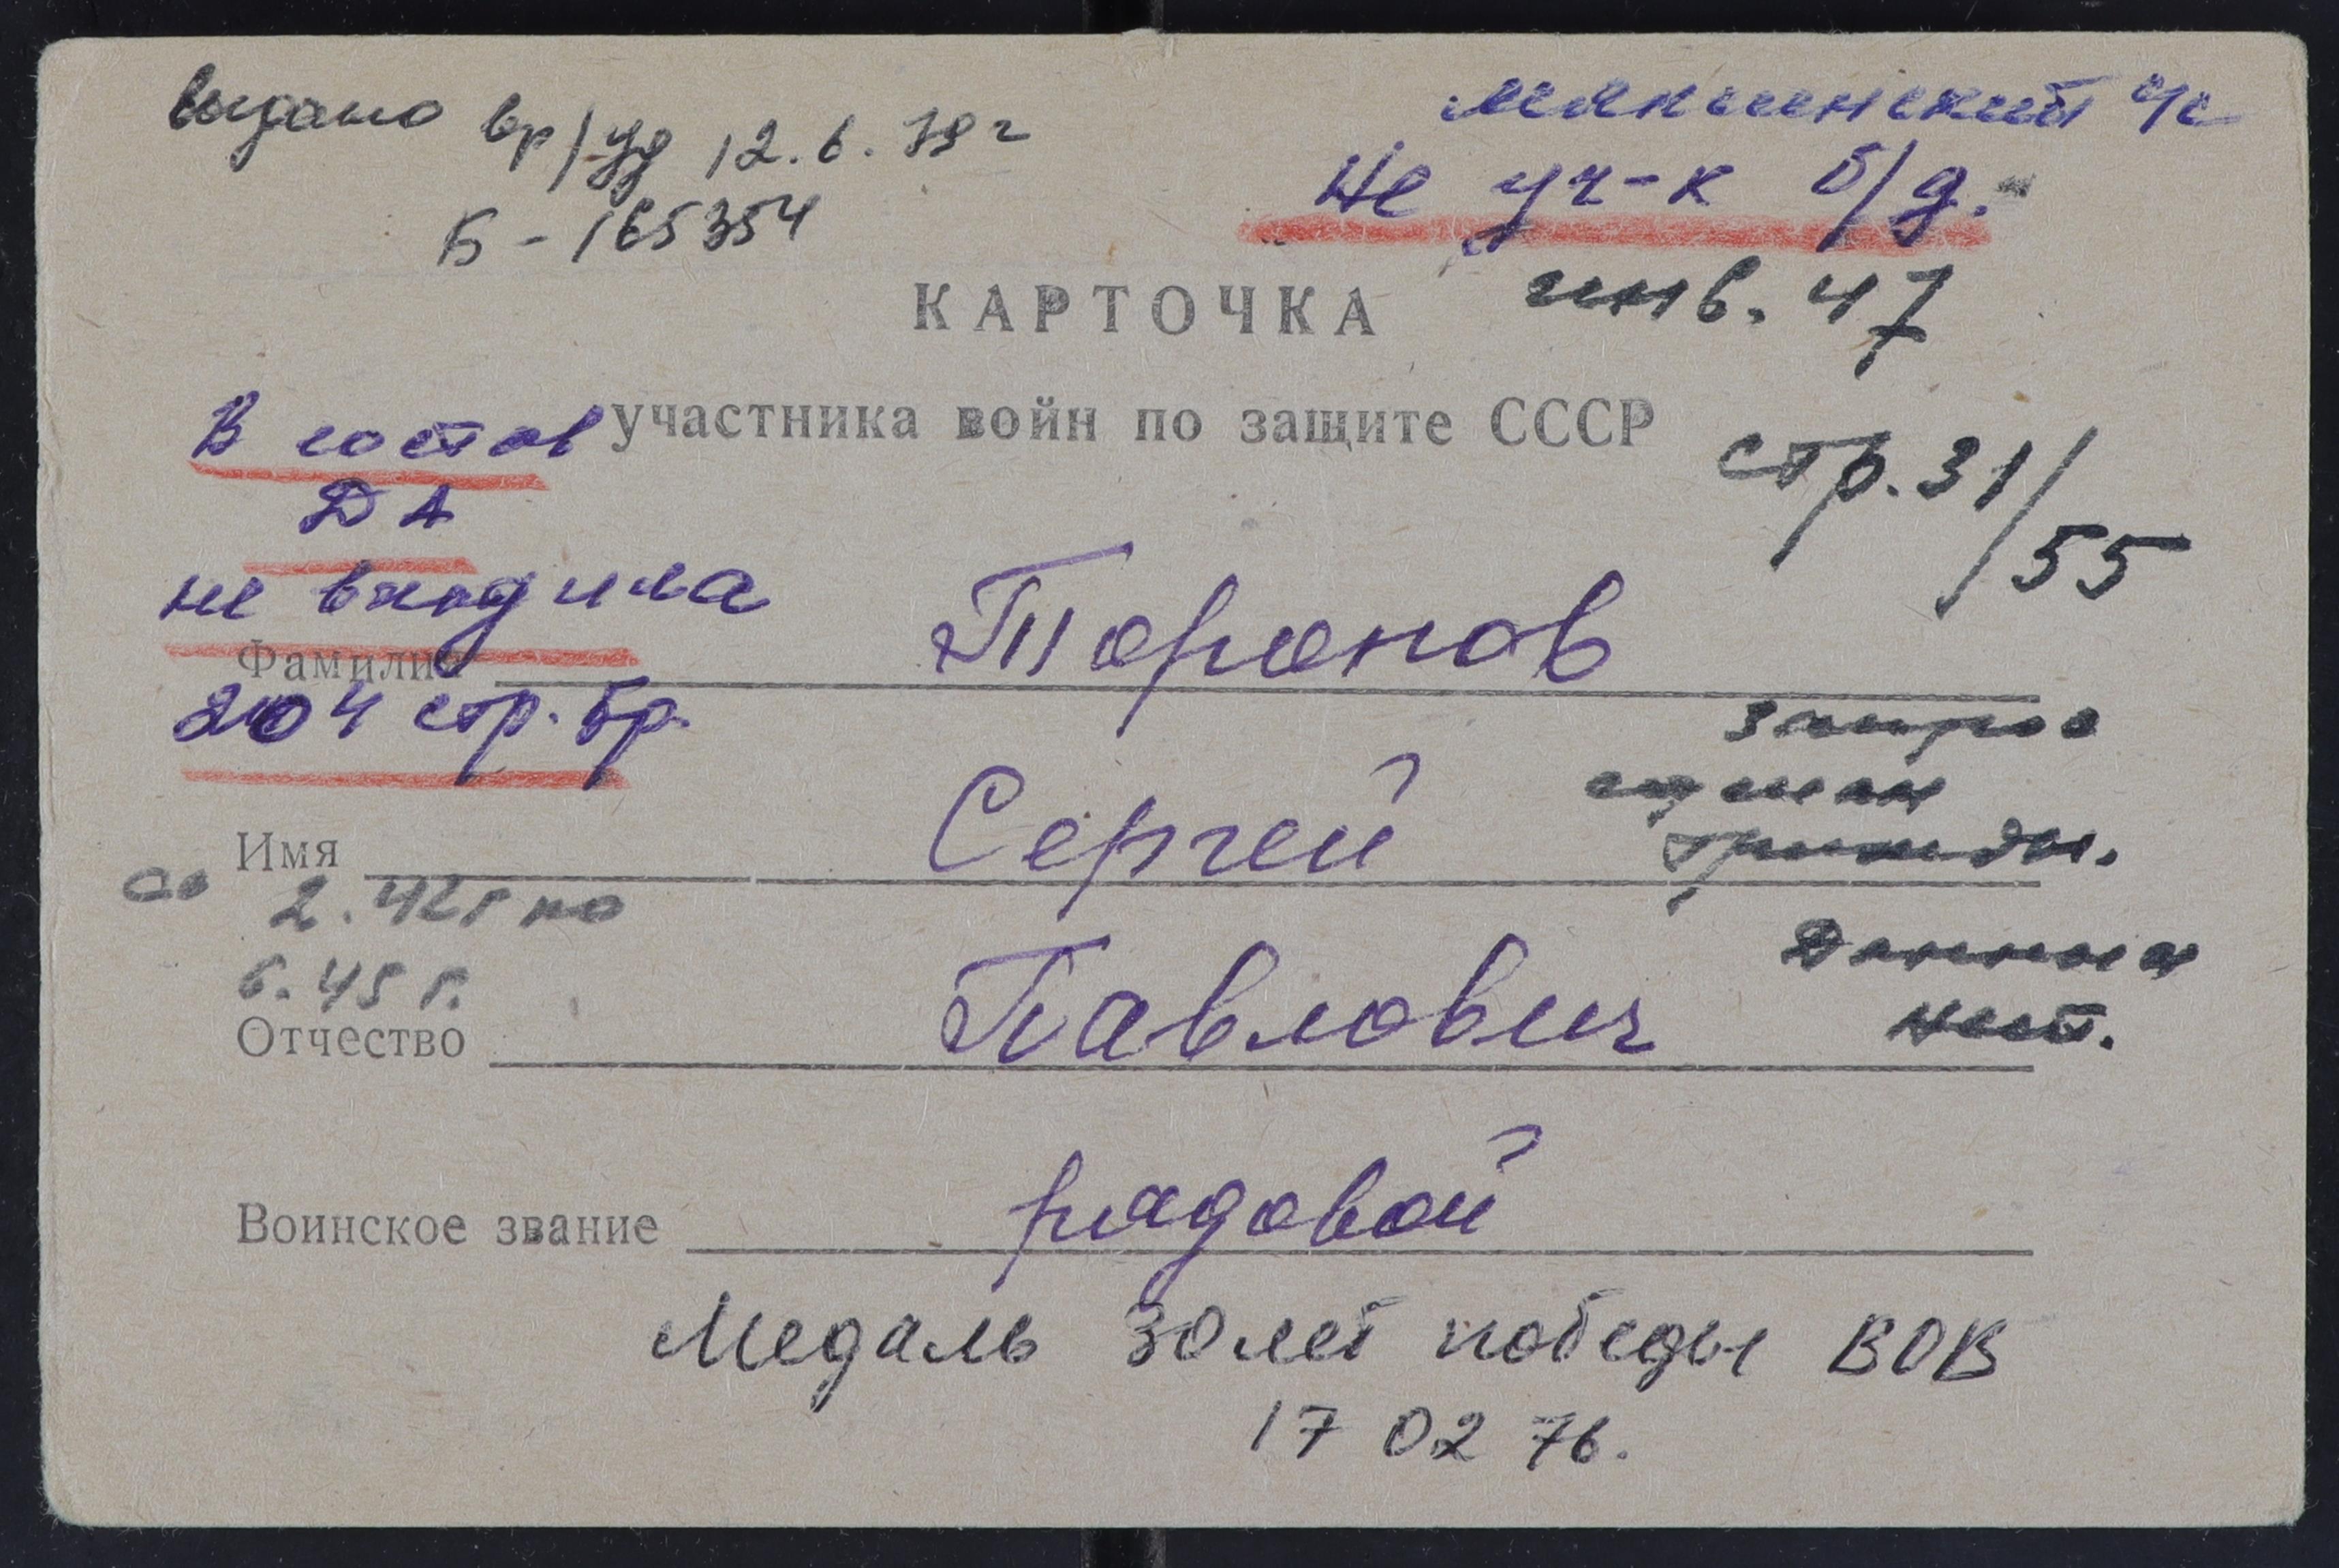 выдано вр/уд 12.6.79 г
Б-165354
Мякшинский ч/с
Не уч-к б/д.
инв. 47
КАРТОЧКА
участника войн по защите СССР
стр. 31/55
В состав
ДА
не входила
204 стр. бр.
Фамилия Торопов
Запрос
сделан
трижды.
Имя Сергей
со 2.42 г по
6.45 г.
Данных
нет.
Отчество Павлович
Воинское звание рядовой
Медаль 30 лет победы ВОВ
17 02 76.